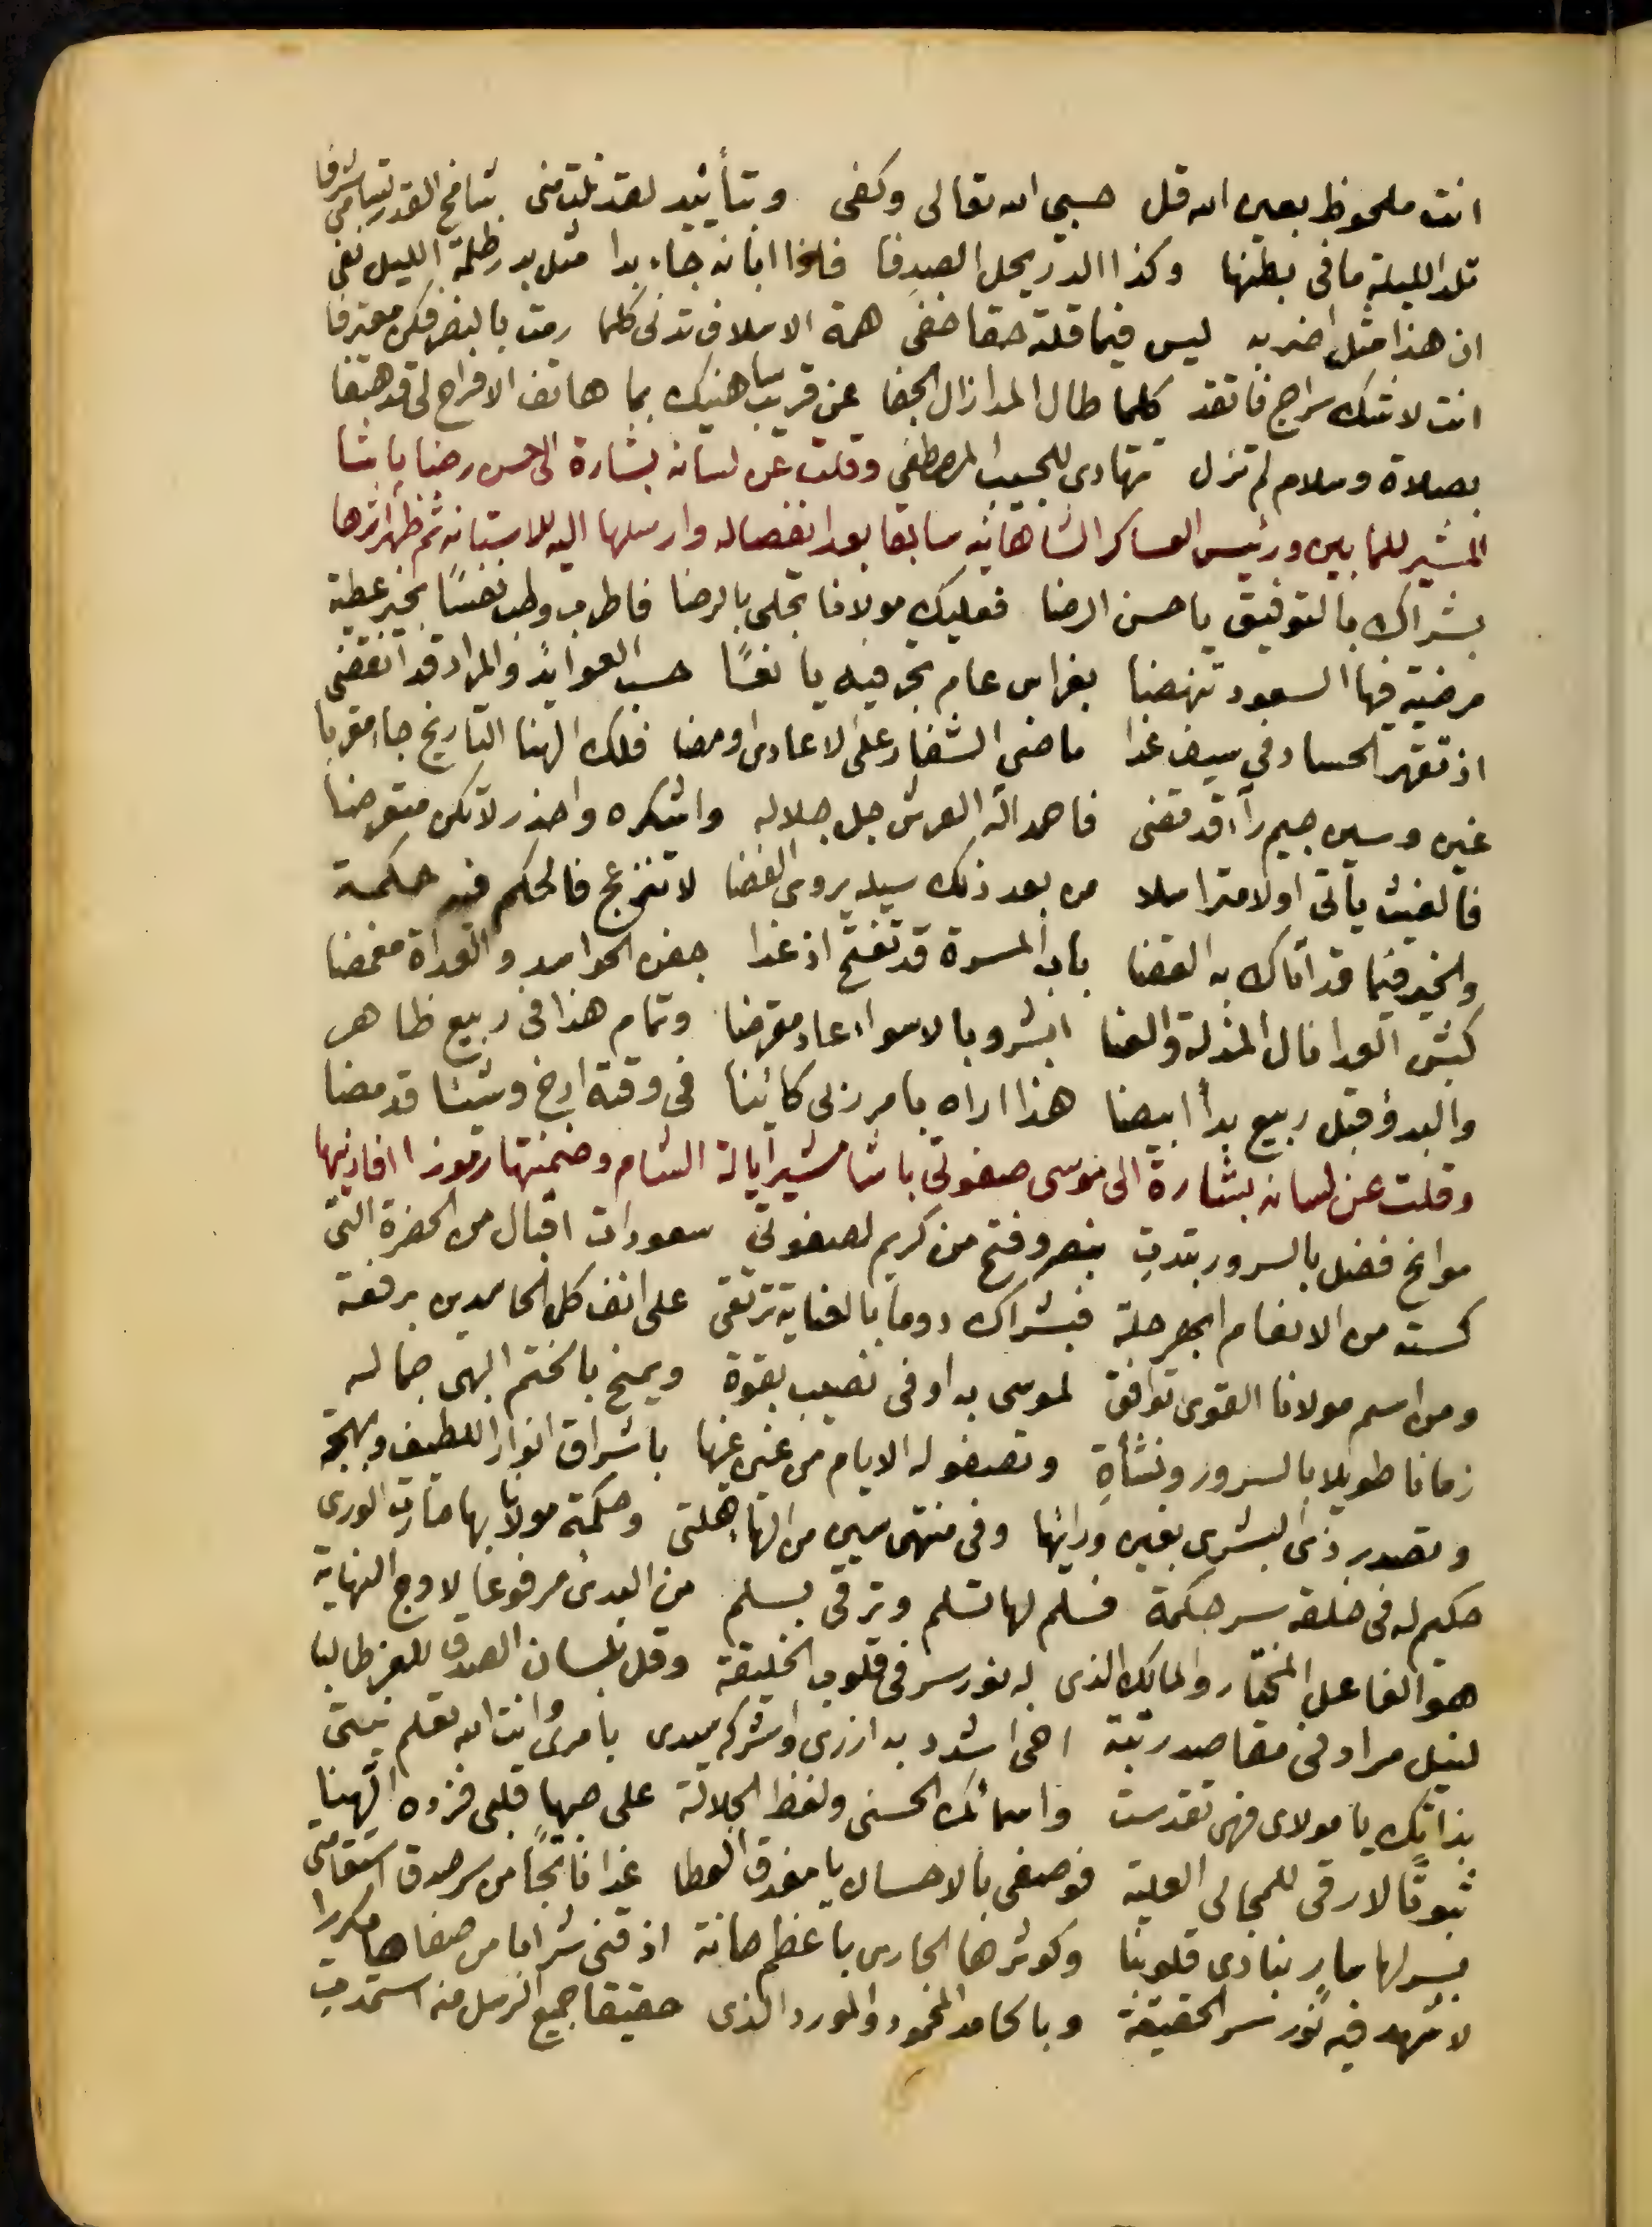 انت ملحوظ بعين الله قل حسبي الله تعالى وكفى وبتأييد لقد نلت منى شامخ القدر تسامى شرفا
تلد الليلة ما في بطنها وكذا الدر يحل الصدفا فاذا ابانه جاء بدا مثل بدر ظلمة الليل نفى
ان هذا مثل اضربه ليس فيما قلته حقا خفى همة الاسلاف تدنى كلما رمت بالنصر فكن معترفا
انت لا شك سراج فاتقد كلما طال المدا زال الجفا عن قريب سا هنيك بما هاتف الافراح لي قد هتفا
بصلاة وسلام لم تزل تهادى للحبيب المصطفى وقلت عن لسانه بشارة الى حسن رضا باشا
المشير للمابين ورئيس العساكر الشاهانية سابقا بعد انفصاله وارسلها اليه للاستانة ثم ظهر اثرها
بشراك بالتوفيق يا حسن الرضا فعليك مولانا تجلى بالرضا فاطرب وطب نفسا بخير عطية
مرضية فيها السعود تنهضا بغراس عام نجر فيه يا نفسا حسب العوايد والمراد قد انقضى
اذ تقهر الحساد في سيف غدا ماضي الشفار على الاعادى اومضا فلك الهنا التاريخ جاء مقربا
غين وسين جيم راء قد قضى فاحمد اله العرش جل جلاله واشكره واحذر لا تكن متعرضا
فالغيث يأتي اولا متراسلا من بعد ذلك سيله يروى الفضا لا تنزعج فالحكم فيه حكمة
والخير فيما قد اتاك به القضا باب المسرة قد تفتح اذ غدا جفن الحواسد والعداة مغمضا
كبش العدا نال المذلة والعنا ابشر وبالاسواء عاد مقرضا وتمام هذا في ربيع ظاهر
والبدؤ قبل ربيع بدأ ابيضا هذا اراه بامر ربى كائنا في وقته ارخ وشيئا قد مضا
وقلت عن لسانه بشارة الى موسى صفوتي باشا مشير ايالة الشام وضمنتها رموزا افادنيها
موانح فضل بالسرور تبدت بنصر وفتح من كريم لصفوتي سعودات اقبال من الحضرة التي
كسته من الانعام ابهر حلة فبشراك دوما بالعناية ترتقى على انف كل الحاسدين برفعة
ومن اسم مولانا القوى توافق لموسى به اوفى نصيب بقوة ويمنح بالختم البهى جماله
زمانا طويلا بالسرور ونشأة وتصفو له الايام من غين غينها باشراق انوار اللطيف وبهجة
وتصدر ذى البشرى بغين ورائها وفي منتهى سين من الهاء هلتى وحكمة مولانا بها حارت الورى
حكيم له في خلقه سر حكمة فسلم لها تسلم وترقى بسلم من البدئ مرفوعا لاوج النهاية
هو الفاعل المختار والمالك الذى له نور سر في قلوب الخليقة وقل بلسان الصدق للعز طالبا
لنيل مراد في مقاصد رتبة اخى اشدد به ازرى واشركه سيدى بامرى وانت الله تعلم نيتى
بذاتك يا مولاى فهى تقدست واسمائك الحسنى ولفظ الجلالة على حبها قلبى فزده الهنا
ثبوتا لارقى للمجالى العلية فوصفى بالاحسان يا مغدق العطا غدا ناتجا من سر صدق استقامتى
بسر لها سار بنادى قلوبنا وكوثرها الجارى باعظم حانة اذقنى شرابا من صفاها مكررا
لاشهد فيه نور سر الحقيقة وبالحامد المحمود والمورد الذى حقيقا جميع الرسل منه استمدت